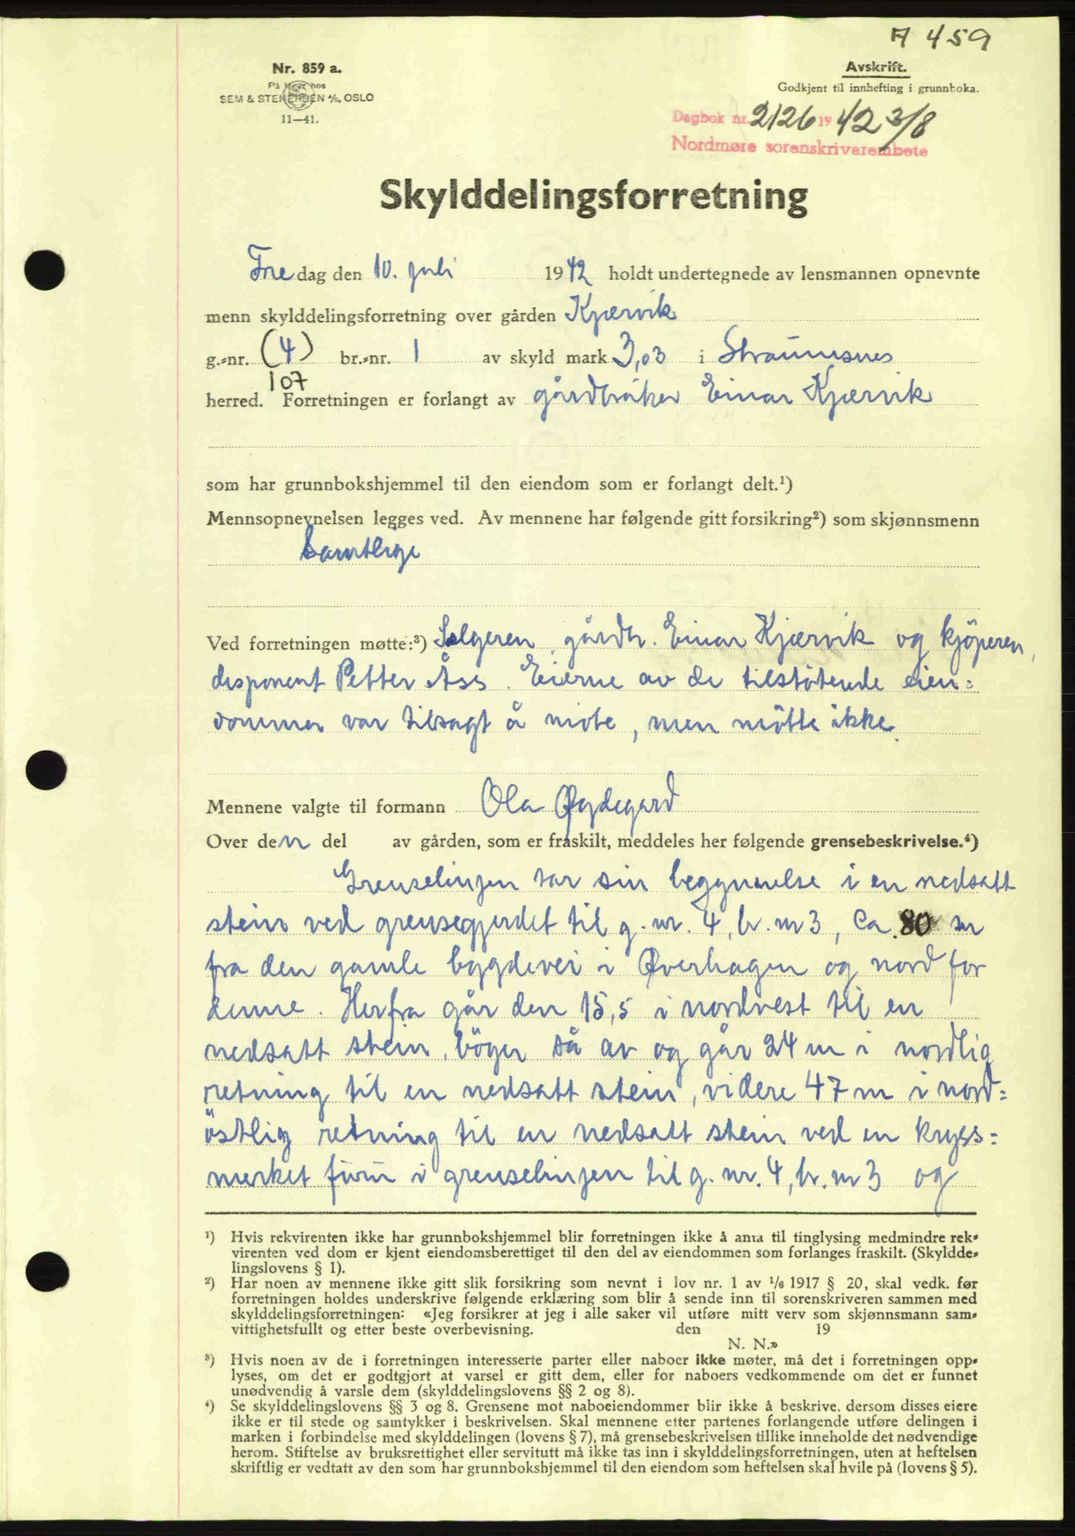 A 459
Nr. 859 a.
På lager hos
SEM & STENERSEN A/S, OSLO
11—41.
Avskrift.
Godkjent til innhefting i grunnboka.
Dagbok nr. 2126 1942 3/8
Nordmøre sorenskrivarembete
Skylddelingsforretning
Fredag den 10. juli 1942 holdt undertegnede av lensmannen opnevnte
menn skylddelingsforretning over gården Kjærvik
g.-nr. (4) br.-nr. 1 av skyld mark 3,03 i Straumsnes
107
herred. Forretningen er forlangt av gårdbruker Einar Kjærvik
som har grunnbokshjemmel til den eiendom som er forlangt delt.¹)
Mennsopnevnelsen legges ved. Av mennene har følgende gitt forsikring²) som skjønnsmenn
Samtlige
Ved forretningen møtte:³) Selgeren, gårdbr. Einar Kjærvik og kjöperen,
disponent Petter Åss. Eierne av de tilstötende eien=
dommer var tilsagt å möte, men mötte ikke.
Mennene valgte til formann Ola Øygdegard
Over den del av gården, som er fraskilt, meddeles her følgende grensebeskrivelse.⁴)
Grenselinjen tar sin begynnelse i en nedsatt
stein ved grensegjerdet til g. nr. 4, br. nr 3, ca. 80 m
fra den gamle bygdevei i Øverhagen og nord for
denne. Herfra går den 15,5 i nordvest til en
nedsatt stein, böyer så av og går 24 m i nordlig
retning til en nedsatt stein, videre 47 m i nord=
östlig retning til en nedsatt stein ved en kryss=
merket furu i grenselinjen til g. nr. 4, br. nr 3 og
¹) Hvis rekvirenten ikke har grunnbokshjemmel blir forretningen ikke å anta til tinglysing medmindre rek-
virenten ved dom er kjent eiendomsberettiget til den del av eiendommen som forlanges fraskilt. (Skyldde-
lingslovens § 1).
²) Har noen av mennene ikke gitt slik forsikring som nevnt i lov nr. 1 av 1/6 1917 § 20, skal vedk. før
forretningen holdes underskrive følgende erklæring som blir å sende inn til sorenskriveren sammen med
skylddelingsforretningen: «Jeg forsikrer at jeg i alle saker vil utføre mitt verv som skjønnsmann sam-
vittighetsfullt og etter beste overbevisning. den 19
N. N.»
³) Hvis noen av de i forretningen interesserte parter eller naboer ikke møter, må det i forretningen opp-
lyses, om det er godtgjort at varsel er gitt dem, eller for naboers vedkommende om det er funnet
unødvendig å varsle dem (skylddelingslovens §§ 2 og 8).
⁴) Se skylddelingslovens §§ 3 og 8. Grensene mot naboeiendommer blir ikke å beskrive, dersom disses eiere
ikke er til stede og samtykker i beskrivelsen. Skal mennene etter partenes forlangende utføre delingen i
marken i forbindelse med skylddelingen (lovens § 7), må grensebeskrivelsen tillike inneholde det nødvendige
herom. Stiftelse av bruksrettighet eller servitutt må ikke tas inn i skylddelingsforretningen, uten at heftelsen
skriftlig er vedtatt av den som har grunnbokshjemmel til den eiendom som heftelsen skal hvile på (lovens § 5).